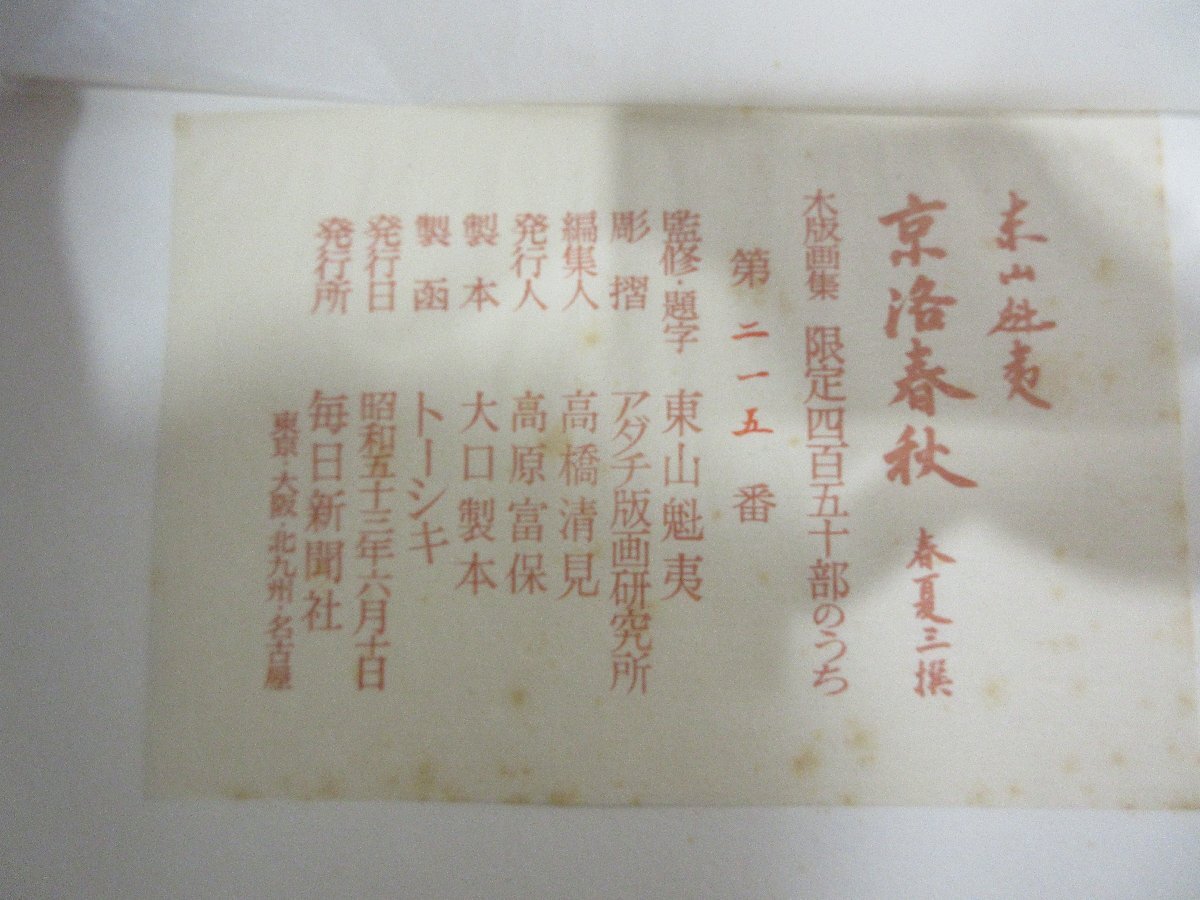 東山魁夷
京洛春秋 春夏三撰
木版画集 限定四百五十部のうち
第二一五番
監修・題字 東山魁夷
彫摺 アダチ版画研究所
編集人 高橋清見
発行人 高原富保
製本 大口製本
製函 トーシキ
発行日 昭和五十三年六月十日
発行所 毎日新聞社
東京・大阪・北九州・名古屋